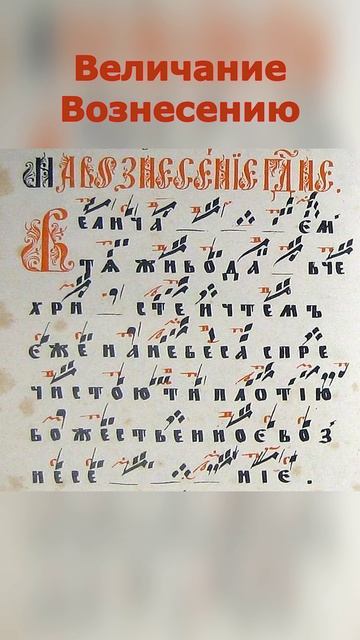 Величание
Вознесению
НАВОЗНЕСЕ́НЇЕ ГД҇НЕ.
ВЕЛИЧА ЄМ
ТѦ ЖИВОДА ВЧЕ
ХРИ СТЕ И ЧТЕМЪ
Є҆ЖЕ НАНЕБЕСА СПРЕ
ЧИСТОЮ ТИ ПЛОТІЮ
БОЖЕСТВЕННОЄ ВОЗ
НЕСЕ НІЄ.